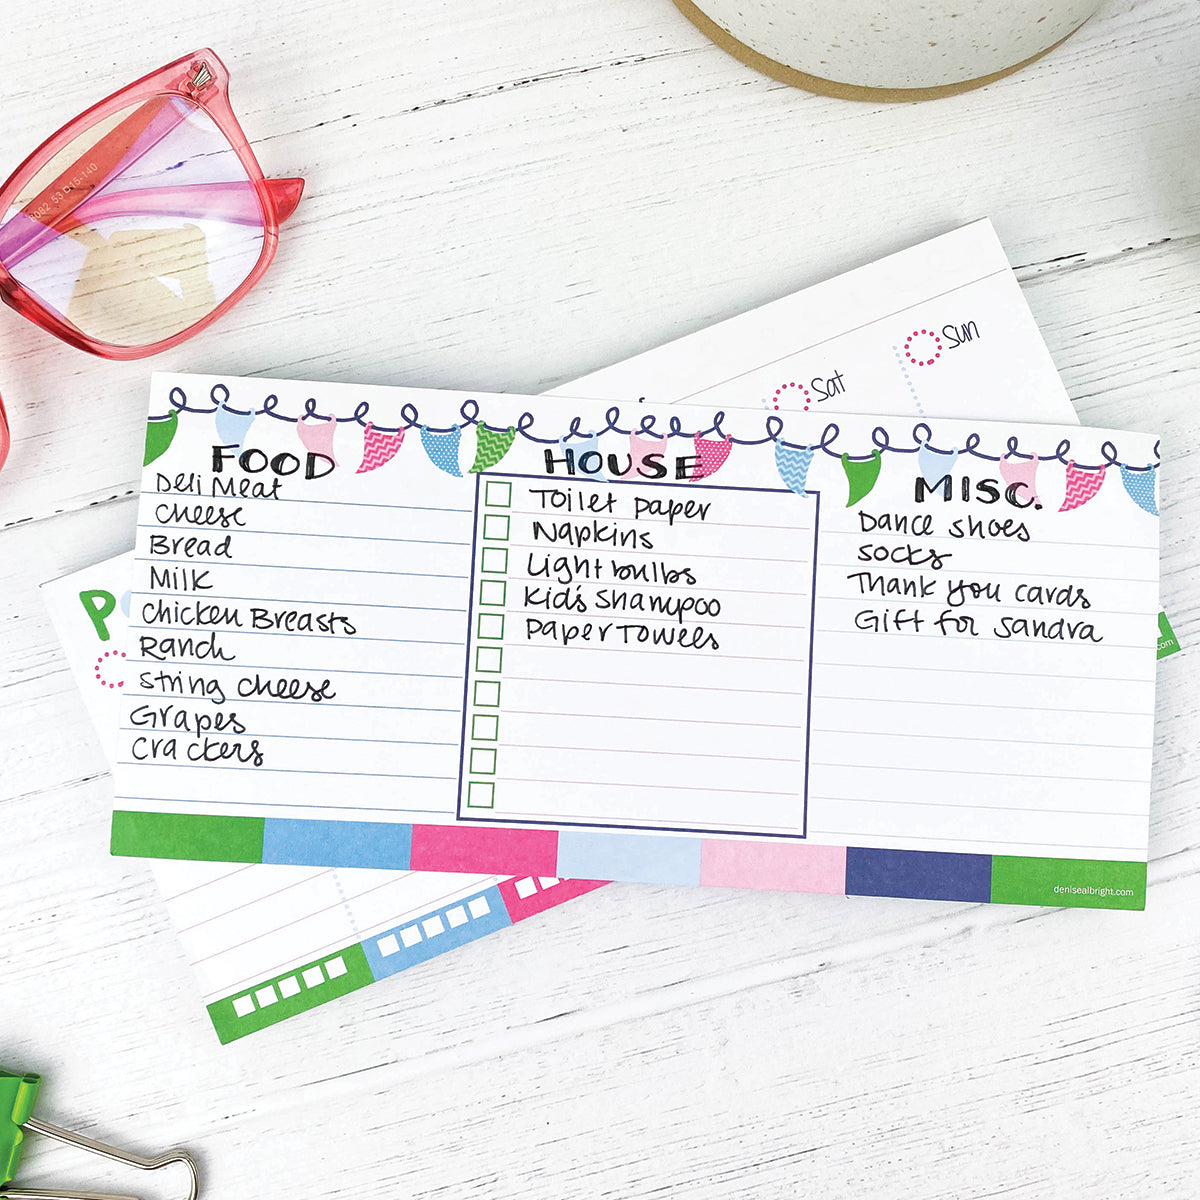 8082 53 15-140
Sun
Sat
FOOD
Deli Meat
cheese
Bread
Milk
chicken Breasts
Ranch
string cheese
Grapes
crackers
HOUSE
Toilet paper
Napkins
Light bulbs
Kid's Shampoo
paper Towels
MISC.
Dance shoes
socks
Thank you cards
Gift for sandra
denisealbright.com
P
.com